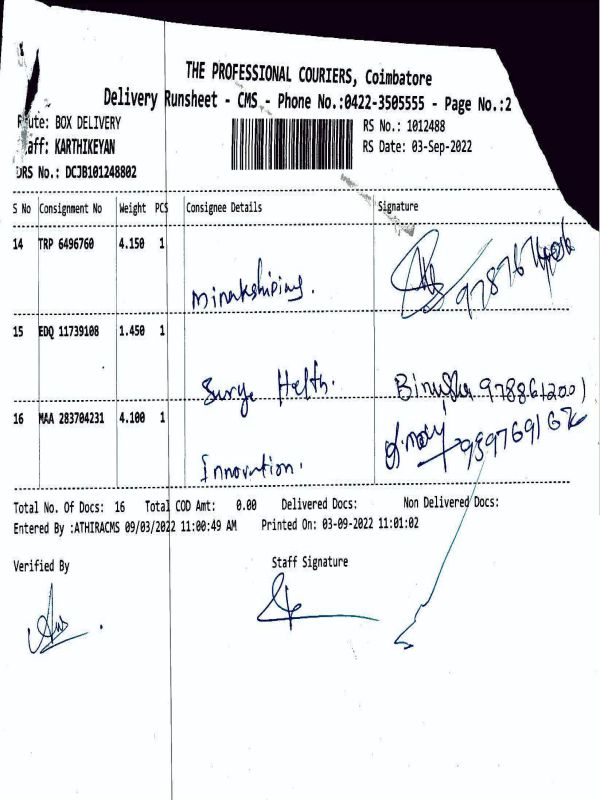 THE PROFESSIONAL COURIERS, Coimbatore
Delivery Runsheet - CMS - Phone No.:0422-3505555 - Page No.:2
ute: BOX DELIVERY
RS No.: 1012488
aff: KARTHIKEYAN
RS Date: 03-Sep-2022
DRS No.: DCJB101248802
S No Consignment No Weight PCS Consignee Details Signature
14 TRP 6496760 4.150 1
15 EDQ 11739108 1.450 1
Surya Helth. 9788612001
16 MAA 283704231 4.100 1
Innovation.
Total No. Of Docs: 16 Total COD Amt: 0.00 Delivered Docs: Non Delivered Docs:
Entered By :ATHIRACMS 09/03/2022 11:00:49 AM Printed On: 03-09-2022 11:01:02
Verified By Staff Signature